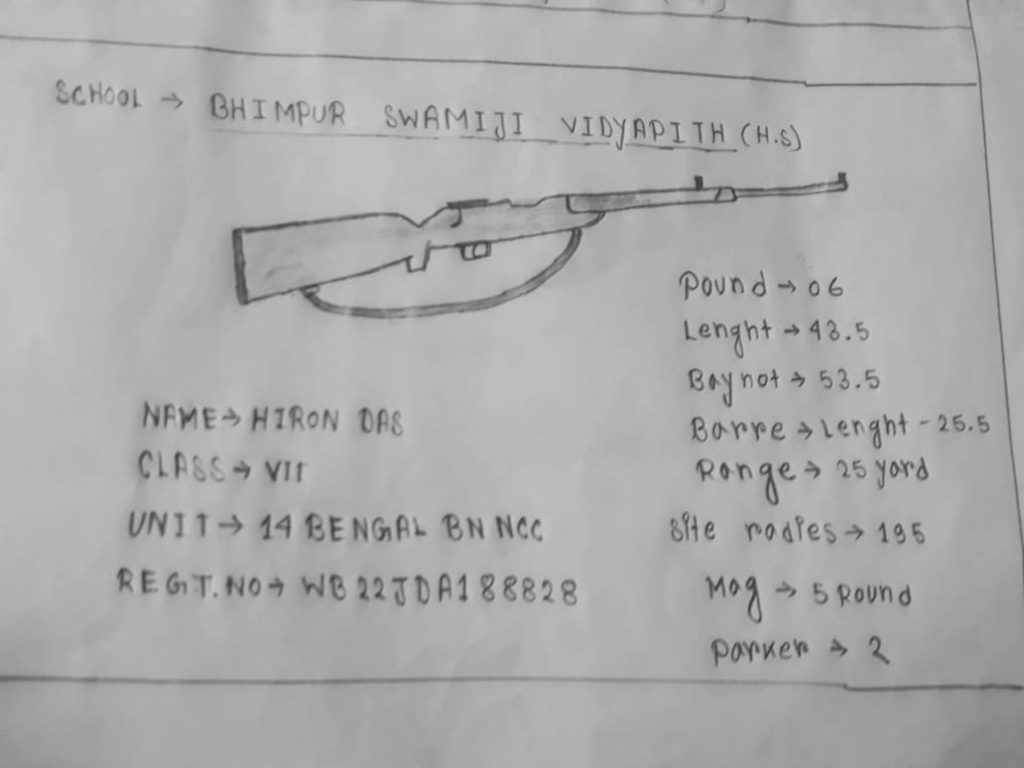 SCHOOL → BHIMPUR SWAMIJI VIDYAPITH (H.S)
Pound → 06
Lenght → 43.5
Baynot → 53.5
Barre → Lenght - 25.5
Range → 25 yard
Site radies → 195
Mag → 5 Round
Parker → 2
NAME → HIRON DAS
CLASS → VII
UNIT → 14 BENGAL BN NCC
REGT. NO → WB22JDA188828